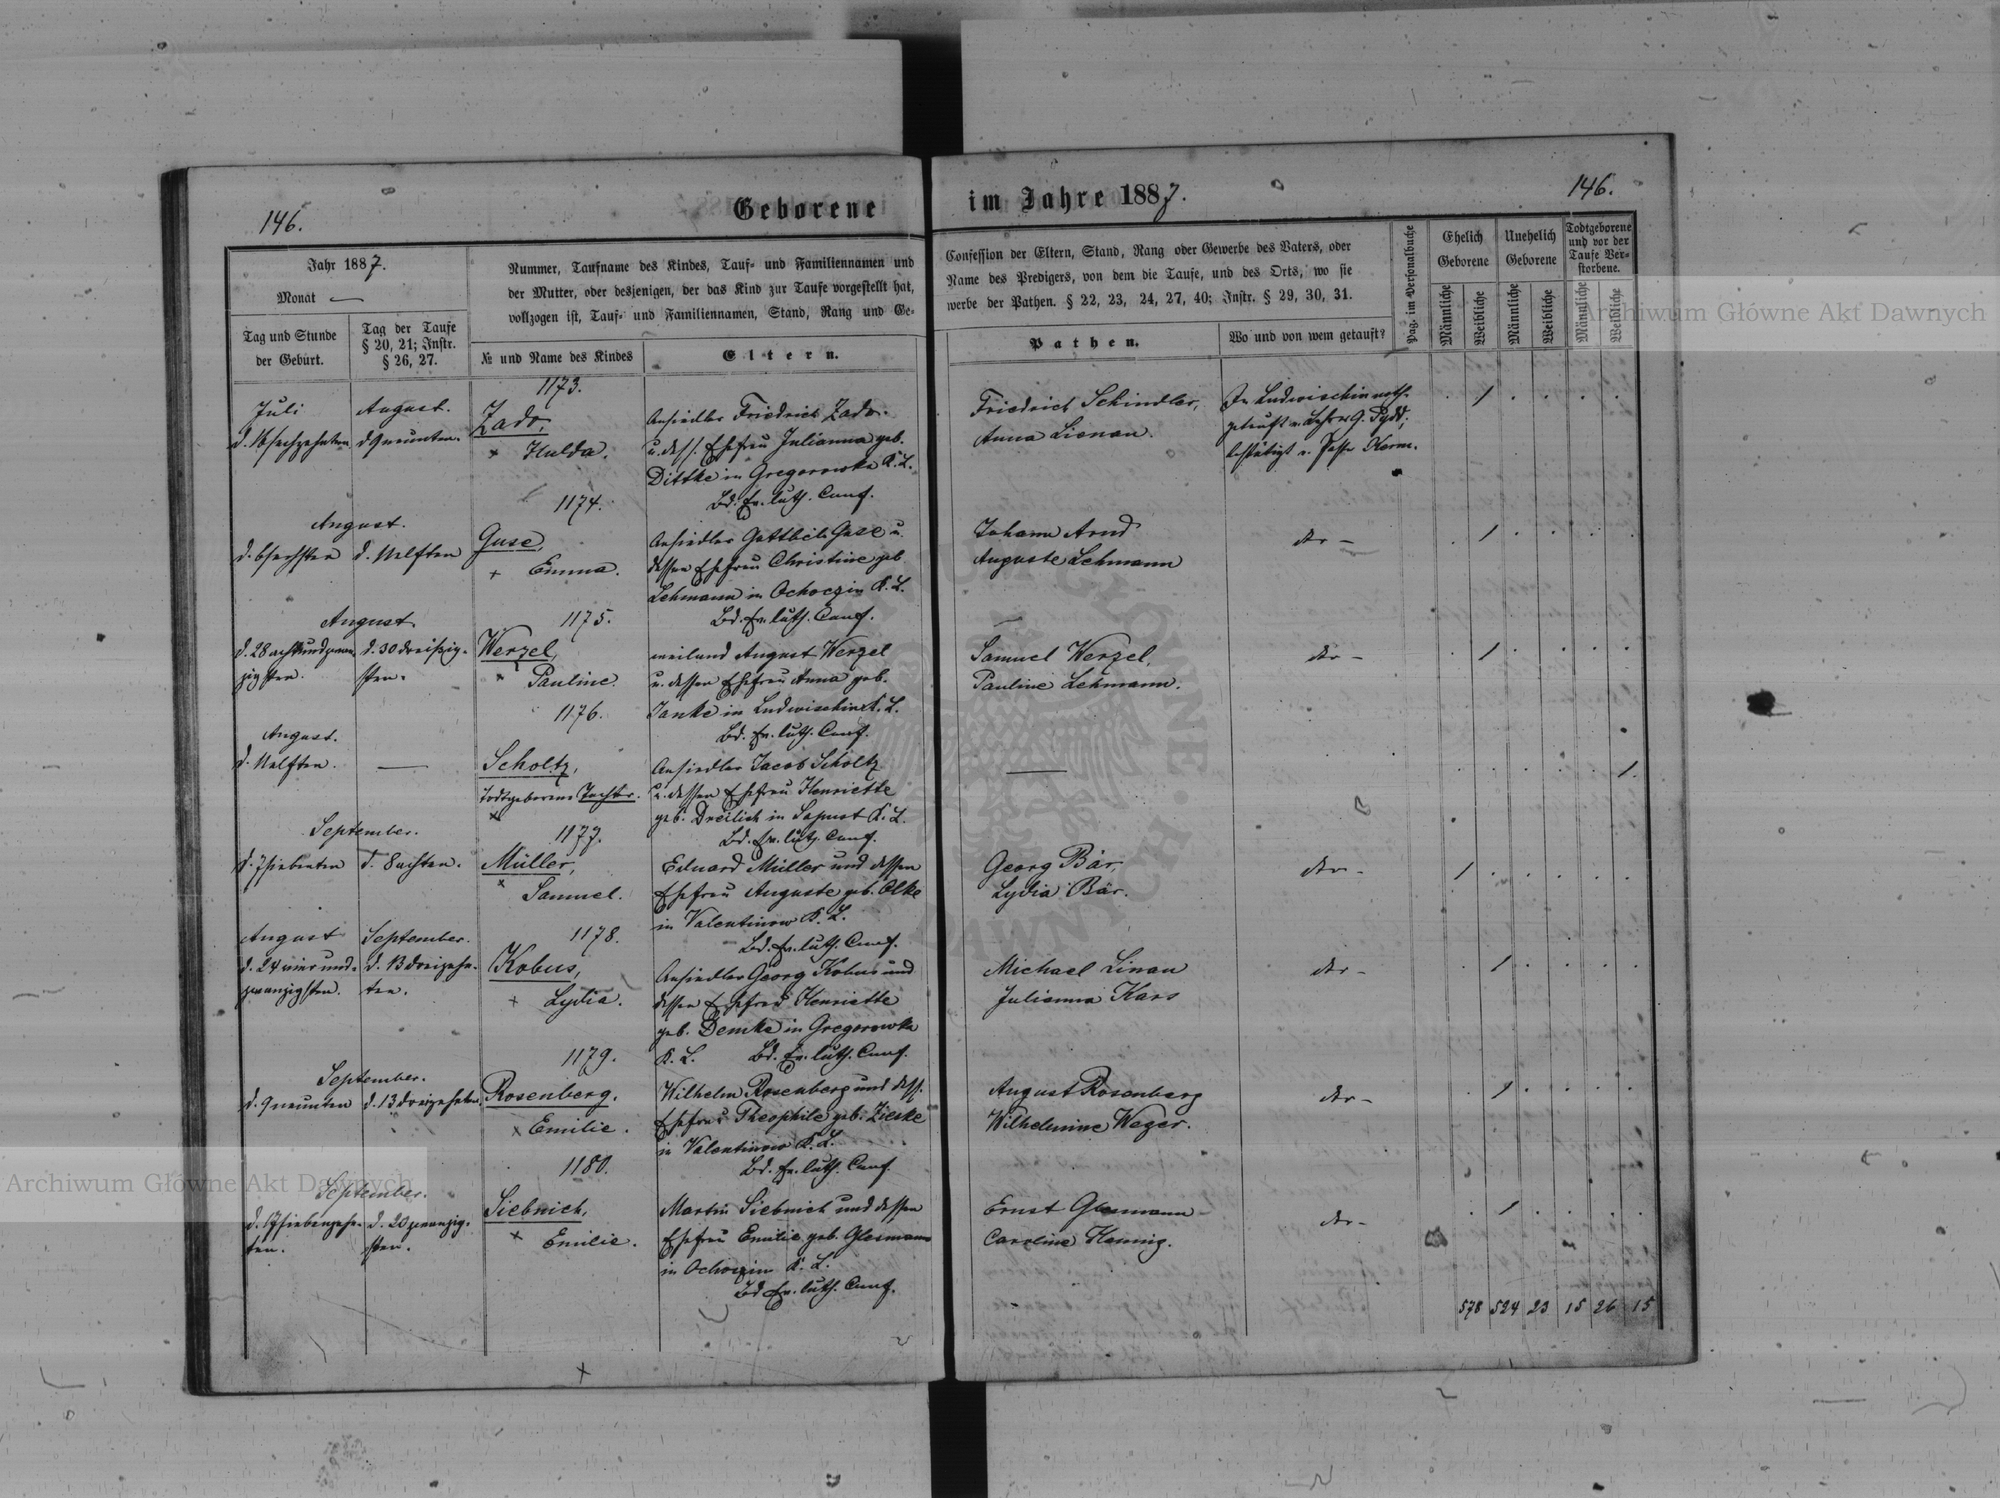 146.
Geborene
Jahr 1887.
Monat —
Tag und Stunde
der Geburt.
Tag der Taufe
§ 20, 21; Instr.
§ 26, 27.
Nummer, Taufname des Kindes, Tauf- und Familiennamen und
der Mutter, oder desjenigen, der das Kind zur Taufe vorgestellt hat,
vollzogen ist, Tauf- und Familiennamen, Stand, Rang und Ge-
№ und Name des Kindes
Eltern.
1173.
Juli
d. 16 sechzehnten
August.
d. 9 neunten.
Zado,
+ Hulda.
Ansiedler Friedrich Zado.
u. dess. Ehefrau Julianna geb.
Dittke in Gregorowka K. L.
Bd. Ev. luth. Conf.
1174.
August.
d. 6 sechsten
d. 11 elften
Guse,
+ Emma.
Ansiedler Gottlieb Guse u.
dessen Ehefrau Christine geb
Lehmann in Ochoczin K. L.
Bd. Ev. luth. Conf.
1175.
August
d. 28 achtundzwan
zigsten.
d. 30 dreißig-
sten.
Wenzel,
+ Pauline.
weiland August Wenzel
u. dessen Ehefrau Anna geb.
Janke in Ludwischin K. L.
Bd. Ev. luth. Conf.
1176.
August.
d. 11 elften.
—
Scholtz,
Todtgeborene Tochter.
+
Ansiedler Jacob Scholtz
u. dessen Ehefrau Henriette
geb. Dreilich in Sapust K. L.
Bd. Ev. luth. Conf.
1177.
September.
d. 7 siebenten
d. 8 achten.
Müller,
+ Samuel.
Eduard Müller und dessen
Ehefrau Auguste geb. Olke
in Valentinow K. L.
Bd. Ev. luth. Conf.
1178.
August
d. 24 vier und-
zwanzigsten.
September.
d. 13 dreizehn-
ten.
Kobus,
+ Lydia.
Ansiedler Georg Kobus und
dessen Ehefrau Henriette
geb. Demke in Gregorowka
K. L. Bd. Ev. luth. Conf.
1179.
September.
d. 9 neunten
d. 13 dreizehnten.
Rosenberg,
+ Emilie.
Wilhelm Rosenberg und dess.
Ehefrau Theophile geb. Zieske
in Valentinow K. L.
Bd. Ev. luth. Conf
1180.
September.
d. 17 siebenzehn-
ten.
d. 20 zwanzig-
sten.
Siebnich,
+ Emilie.
Martin Siebnich und dessen
Ehefrau Emilie geb. Glesmann
in Ochoczin K. L.
Bd Ev. luth. Conf.
im Jahre 1887.
146.
Confession der Eltern, Stand, Rang oder Gewerbe des Vaters, oder
Name des Predigers, von dem die Taufe, und des Orts, wo sie
werbe der Pathen. § 22, 23, 24, 27, 40; Instr. § 29, 30, 31.
Pathen.
Wo und von wem getauft?
Pag. im Personalbuche
Ehelich
Geborene
Unehelich
Geborene
Todtgeborene
und vor der
Taufe Ver-
storbene.
Männliche
Weibliche
Männliche
Weibliche
Männliche
Weibliche
Friedrich Schindler,
Anna Lienau.
In Ludwischin noth-
getauft v. Lehrer G. Pydd;
bestätigt v. Past. Kerm.
1
Johann Arnd
Auguste Lehmann
dto —
1
Samuel Wenzel,
Pauline Lehmann.
dto —
1
—
1.
Georg Bär,
Lydia Bär.
dto —
1
Michael Linau
Julianna Kars
dto —
1
August Rosenberg
Wilhelmine Weger.
dto —
1
Ernst Glesmann
Caroline Hennig.
dto —
1
578 524 23 15 26 15
Archiwum Główne Akt Dawnych
Archiwum Główne Akt Dawnych